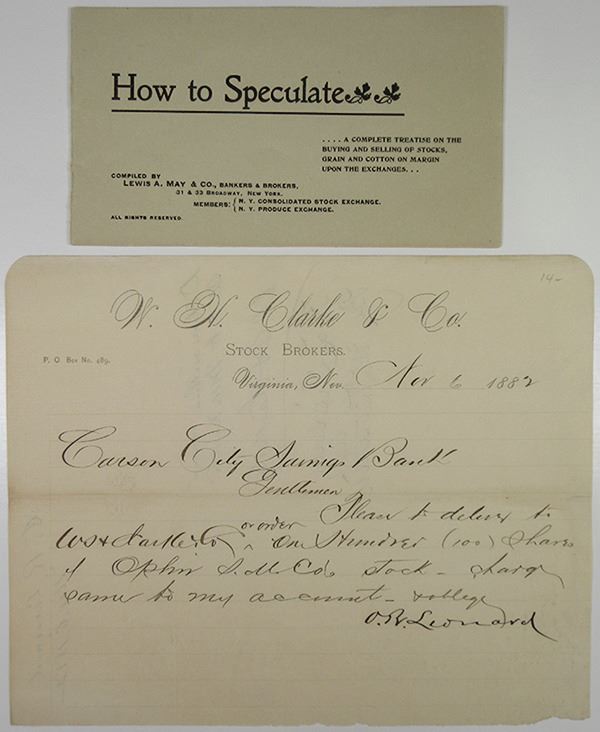 How to Speculate
. . . . A COMPLETE TREATISE ON THE
BUYING AND SELLING OF STOCKS,
GRAIN AND COTTON ON MARGIN
UPON THE EXCHANGES. . .
COMPILED BY
LEWIS A. MAY & CO., BANKERS & BROKERS,
31 & 33 BROADWAY, NEW YORK.
MEMBERS: { N. Y. CONSOLIDATED STOCK EXCHANGE.
N. Y. PRODUCE EXCHANGE.
ALL RIGHTS RESERVED.
14-
W. H. Clarke & Co.
STOCK BROKERS.
P. O Box No. 489.
Virginia, Nev. Nov 6 1882
Carson City Savings Bank
Gentlemen
Please to deliver to
or order
One Hundred (100) Shares
of Ophir S. M. Co's stock - charge
same to my account - & oblige
O. R. Leonard